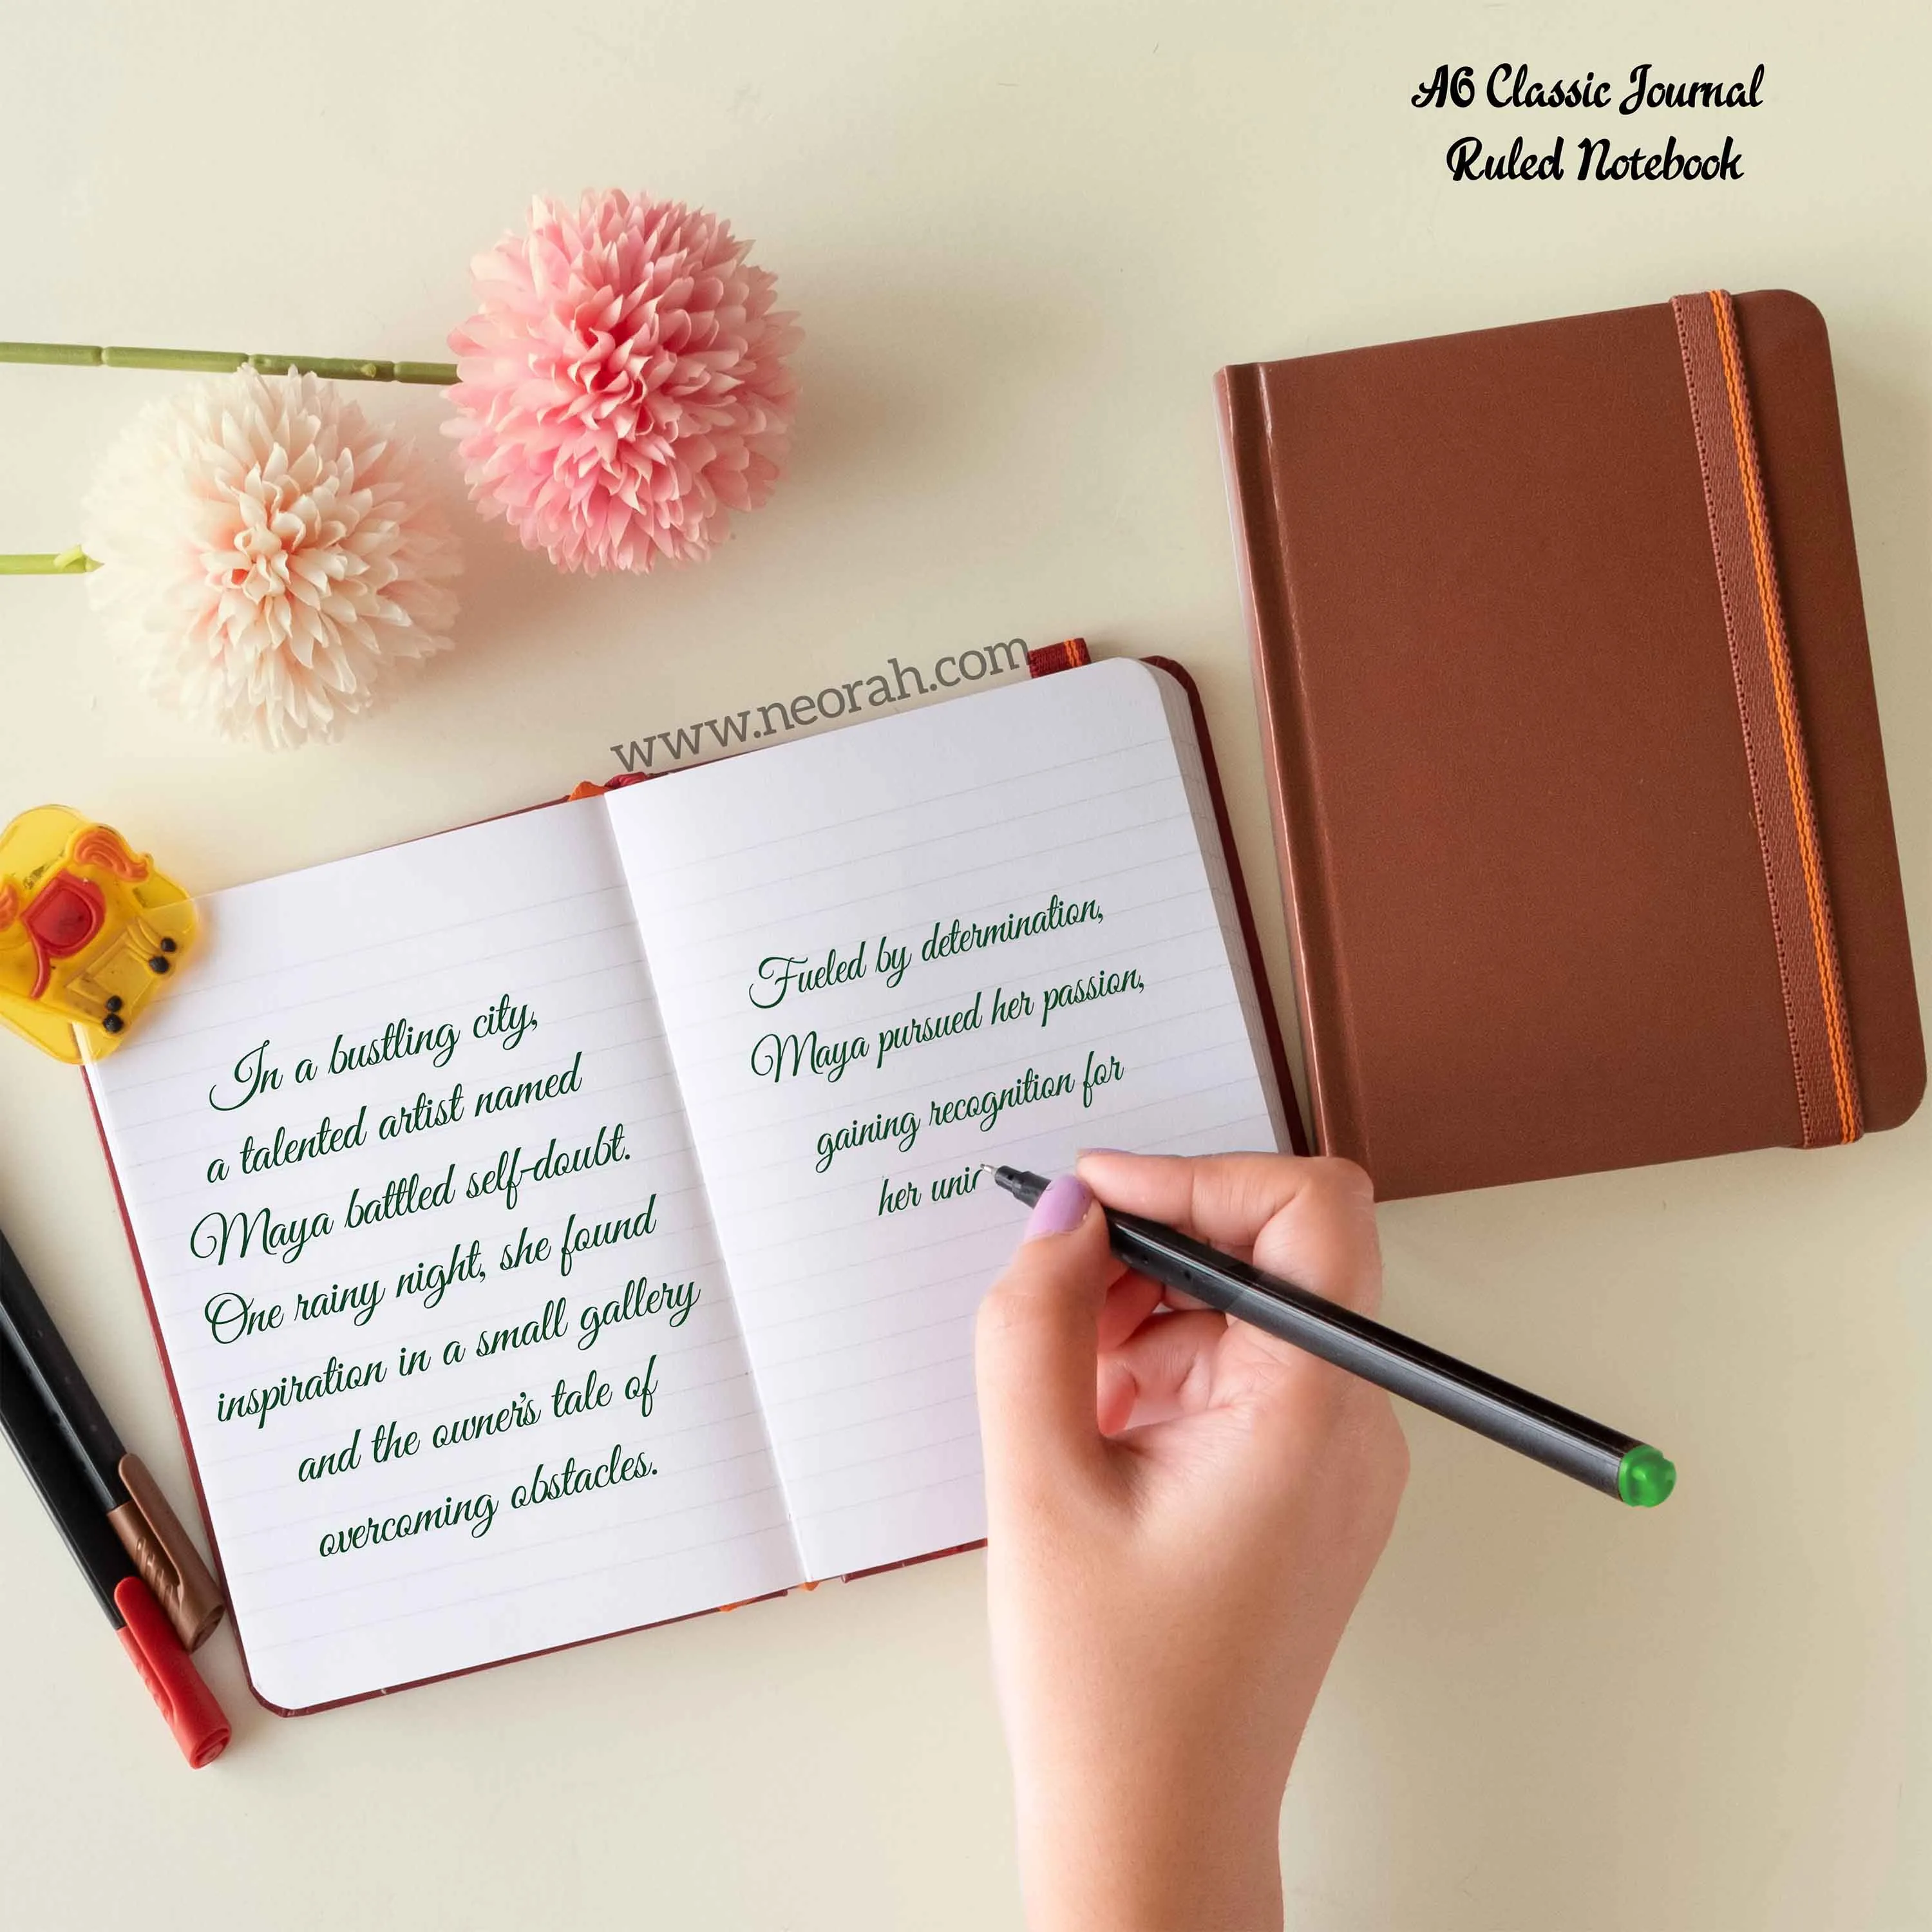 A6 Classic Journal
Ruled Notebook
www.neorah.com
In a bustling city,
a talented artist named
Maya battled self-doubt.
One rainy night, she found
inspiration in a small gallery
and the owner's tale of
overcoming obstacles.
Fueled by determination,
Maya pursued her passion,
gaining recognition for
her